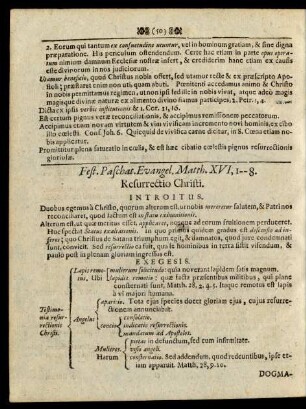 (50)
2. Eorum qui tantum ex consuetudine utuntur, vel in hominum gratiam, & sine digna
præparatione. His periculum ostendendum. Certe hac etiam in parte opus operatum
nimium damnum Ecclesiæ nostræ infert, & crediderim hanc etiam ex causis
esse divinorum in nos judiciorum.
Utamur beneficio, quod Christus nobis offert, sed utamur recte & ex præscripto Apostoli;
præstaret enim non uti quam abuti. Pœnitenti accedamus animo & Christo
in nobis permittamus regimen, ut non ipsi sed ille in nobis vivat, atque adeo magis
magisque divinæ naturæ ex alimento divino fiamus participes. 2. Petr. 1, 4.
Dicta ex ipsis verbis institutionis & 1. Cor. 11, 26.
Est certum pignus veræ reconciliationis, & accipimus remissionem peccatorum.
Accipimus etiam novam virtutem & vim vivificam incremento novi hominis, ex cibo
illo cœlesti. Conf. Joh. 6. Quicquid de vivifica carne dicitur, in S. Cœna etiam nobis
applicatur.
Promittitur plena saturatio in cœlis, & est hæc cibatio cœlestis pignus resurrectionis
gloriosæ.
Fest. Paschat. Evangel. Matth. XVI, 1--8.
Resurrectio Christi.
INTROITUS.
Duobus egemus à Christo, quorum alterum est, ut nobis mereretur salutem, & Patri nos
reconciliaret, quod factum est in statu exinanitionis.
Alterum est, ut quæ meritus esset, applicaret, nosque ad eorum fruitionem perduceret.
Huic spectat Status exaltationis. In quo primus quidem gradus est descensio ad inferos;
quo Christus de hostibus triumphum egit, & damnatos, quod jure condemnati
sunt, convicit. Sed resurrectio ea fuit, qua is hominibus in terra illis visus est, & paulo
post in plenum gloriam ingressus.
EXEGESIS.
Testimonia resurrectionis Christi.
Lapis remotus, Ubi
mulierum simplicitas: quia noverant lapidem satis magnum.
Itaque remotus est lapis
à vi majori humana.
Angelus
apparitio. Tota ejus species docet gloriam ejus, cujus resurrectionem annunciabit.
concio
consolatio.
indicatio resurrectionis.
mandatum ad Apostolos.
Mulieres. Harum
visa angeli.
consternatio. Sed addendum, quod redeuntibus, ipse etiam
apparuit. Matth. 28, 9. 10.
DOGMA-